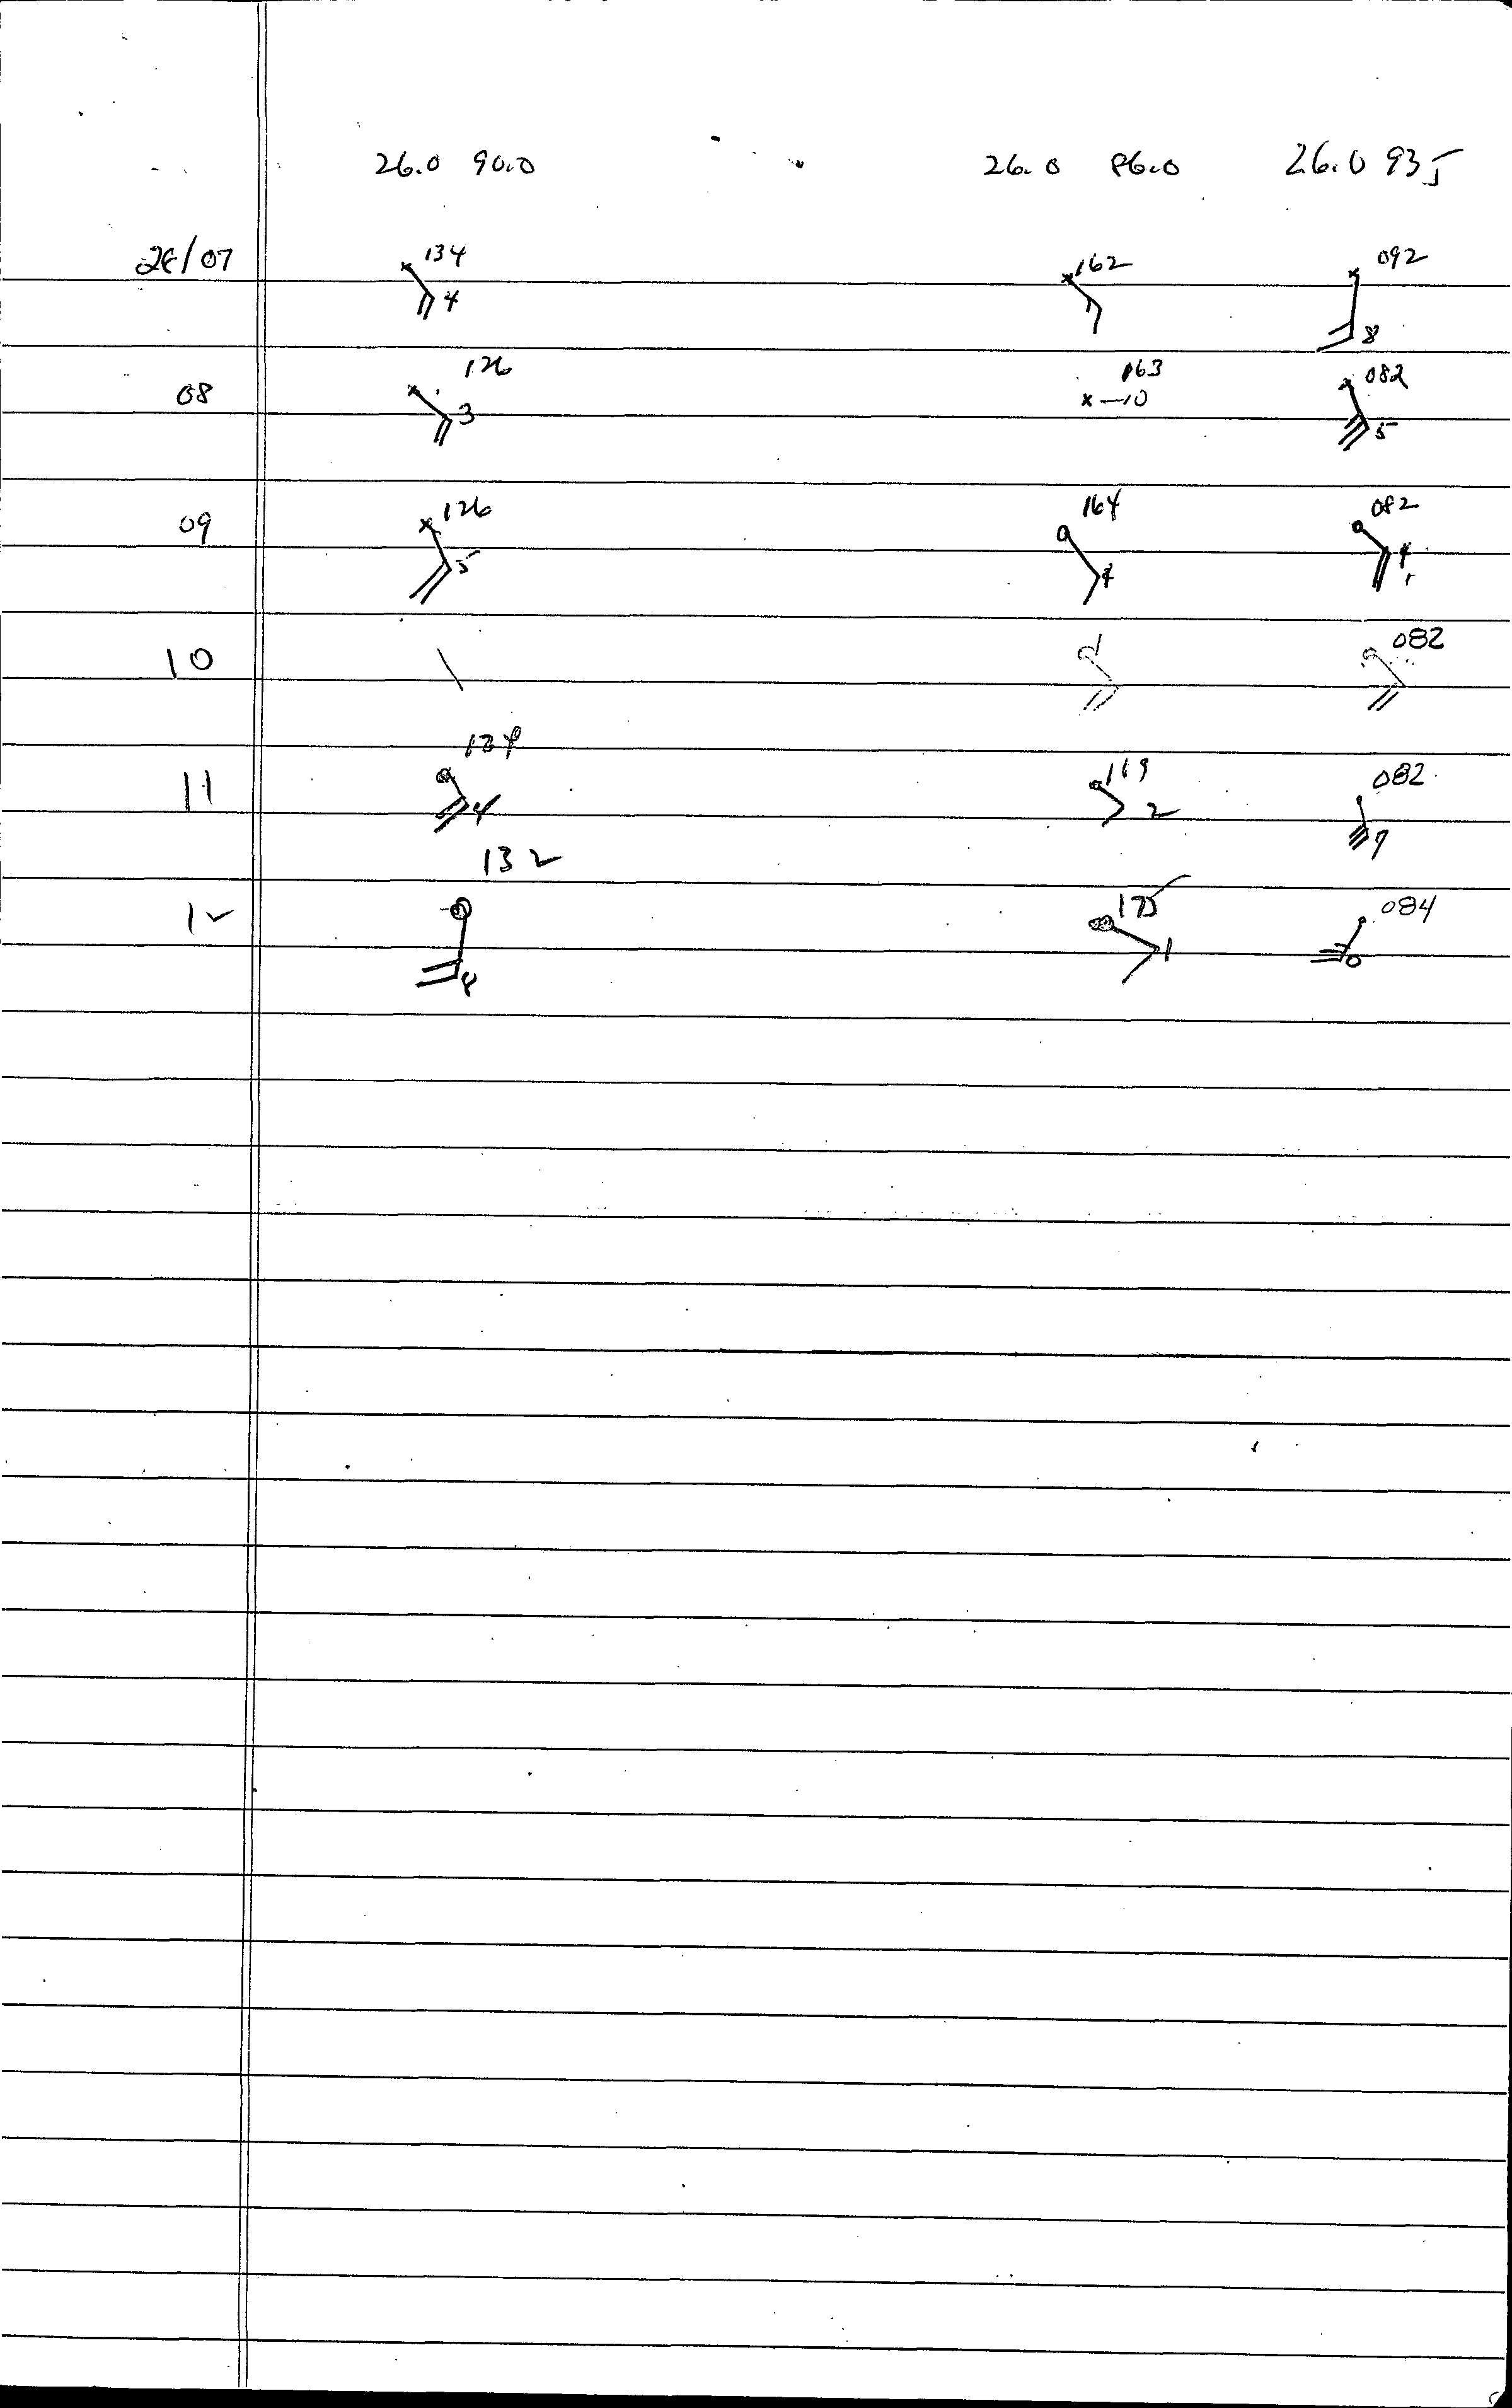 26.0 90.0 26.0 86.0 26.0 935
28/07 134 4 162 092 8
08 126 3 163 10 082 5
09 126 5 164 082 4
10 082
11 4 119 2 082 7
132
12 8 175 1 084 0